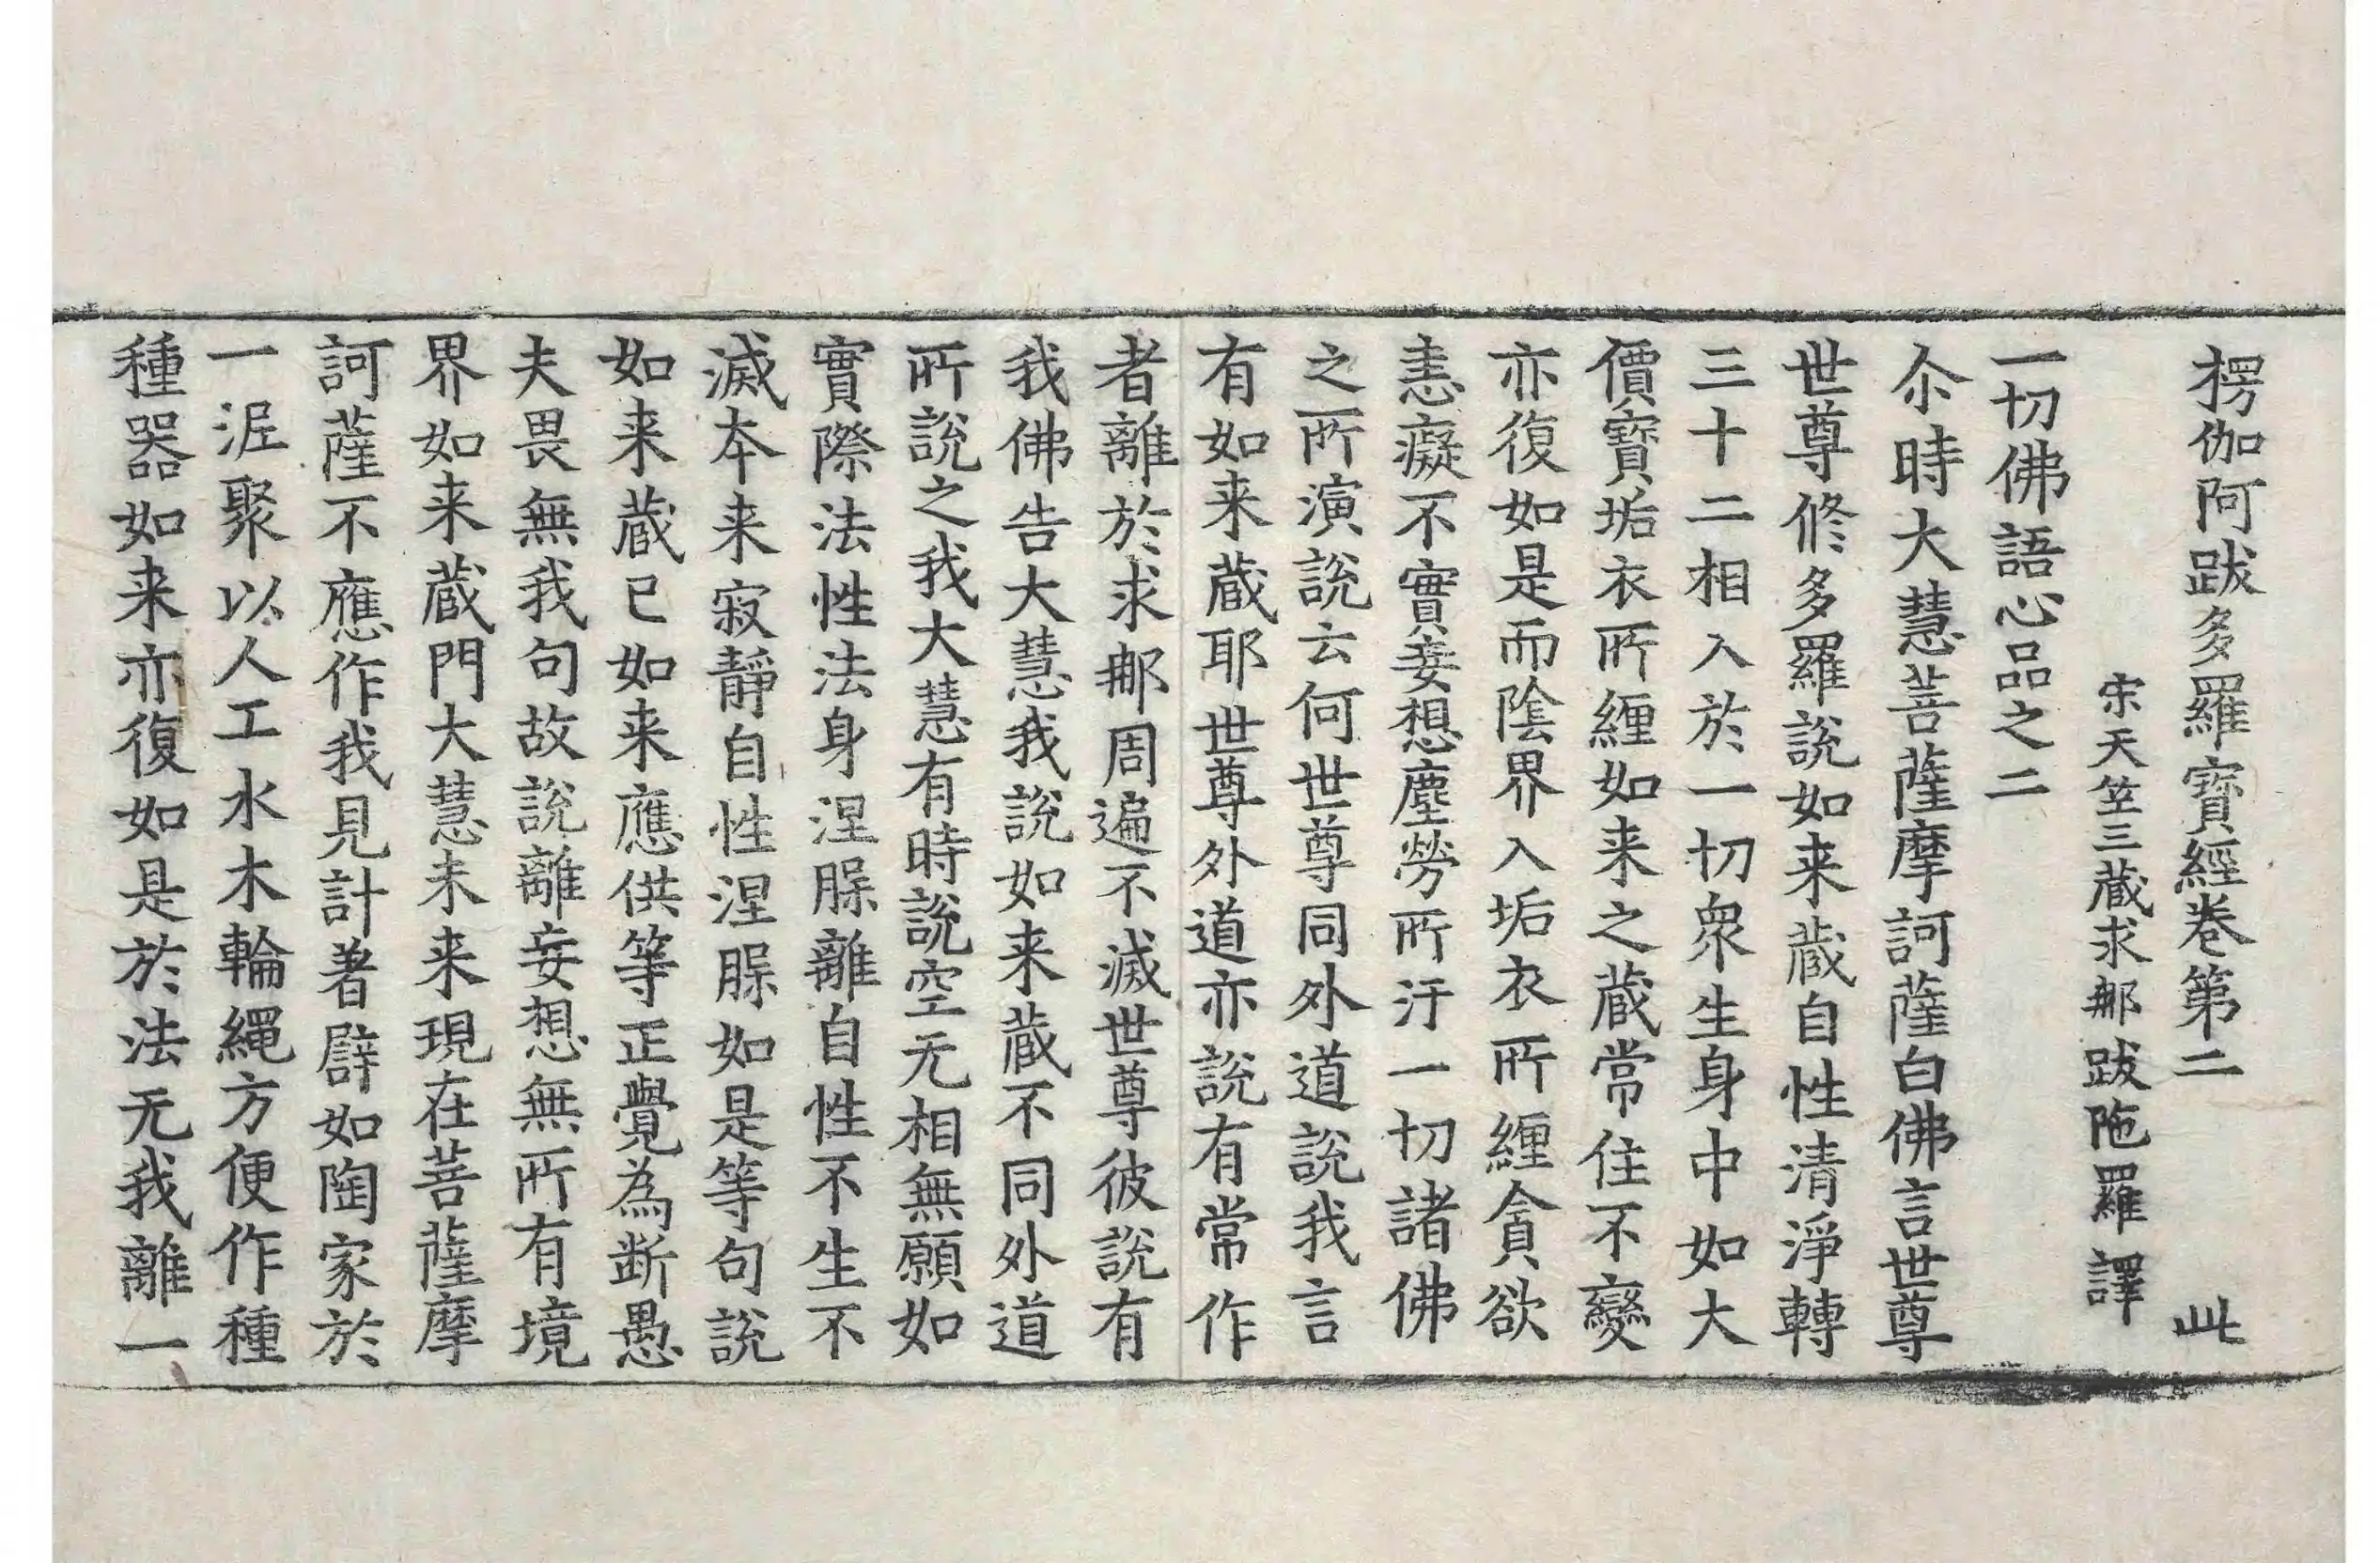 楞伽阿跋多羅寶經卷第二 此
宋天竺三藏求那跋陁羅譯
一切佛語心品之二
尒時大慧菩薩摩訶薩白佛言世尊
世尊修多羅說如来藏自性清淨轉
三十二相入於一切衆生身中如大
價寶垢衣所纏如来之藏常住不變
亦復如是而陰界入垢衣所纏貪欲
恚癡不實妄想塵勞所汙一切諸佛
之所演說云何世尊同外道說我言
有如来藏耶世尊外道亦說有常作
者離於求那周遍不滅世尊彼說有
我佛告大慧我說如来藏不同外道
所說之我大慧有時說空无相無願如
實際法性法身涅脲離自性不生不
滅本来寂靜自性涅脲如是等句說
如来藏已如来應供等正覺為断愚
夫畏無我句故說離妄想無所有境
界如来藏門大慧未来現在菩薩摩
訶薩不應作我見計著譬如陶家於
一泥聚以人工水木輪繩方便作種
種器如来亦復如是於法无我離一